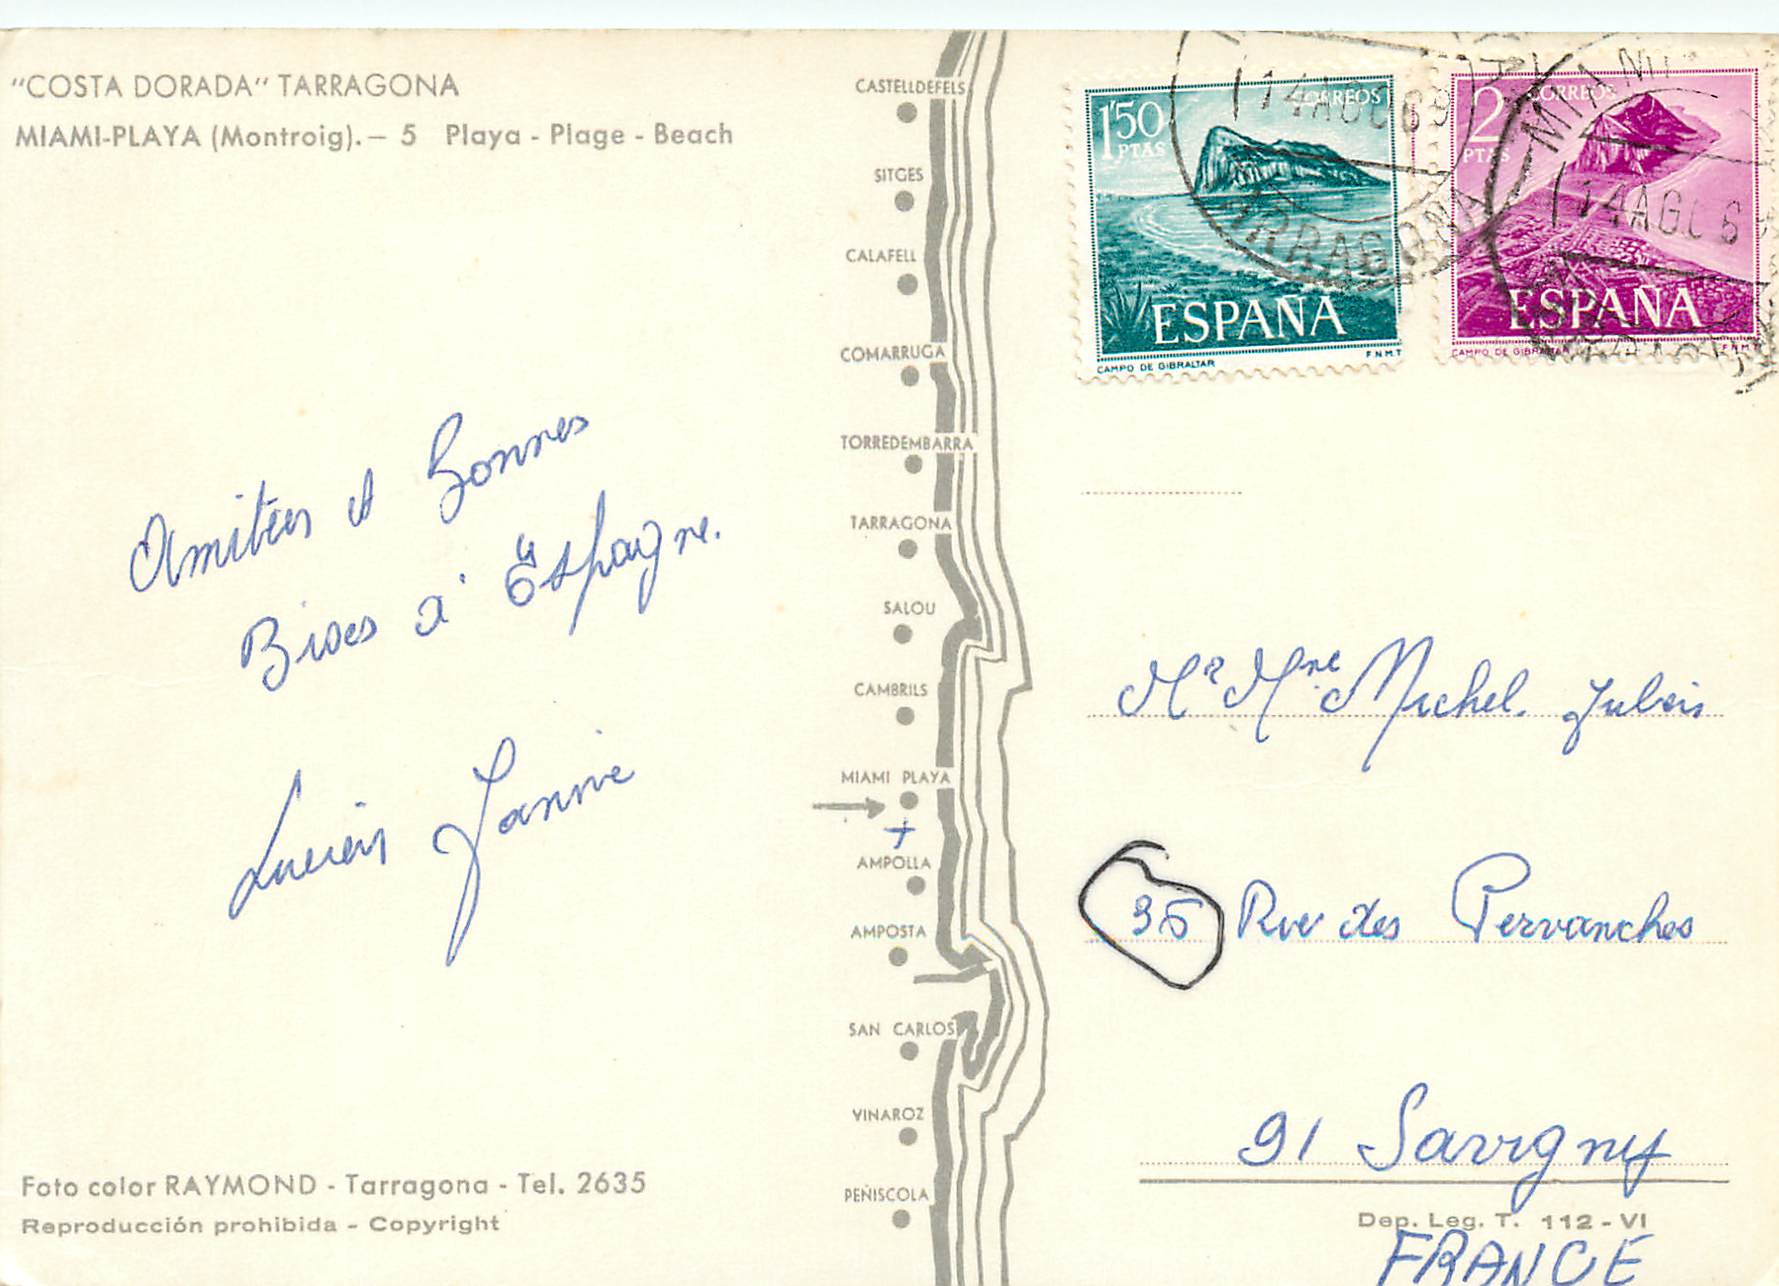 "COSTA DORADA" TARRAGONA
MIAMI-PLAYA (Montroig).— 5 Playa - Plage - Beach
Amitiés et bonnes
Bises d'Espagne.
Lucien Janine
Foto color RAYMOND - Tarragona - Tel. 2635
Reproducción prohibida - Copyright
CASTELLDEFELS
SITGES
CALAFELL
COMARRUGA
TORREDEMBARRA
TARRAGONA
SALOU
CAMBRILS
MIAMI PLAYA
AMPOLLA
AMPOSTA
SAN CARLOS
VINAROZ
PEÑISCOLA
1'50 PTAS
CORREOS
ESPAÑA
CAMPO DE GIBRALTAR
F.N.M.T
14 AGO 69
TARRAGONA
2 PTAS
CORREOS
ESPAÑA
CAMPO DE GIBRALTAR
F.N.M.T
14 AGO 6
Mr Mme Michel
35 Rue des Pervanches
91 Savigny
Dep. Leg. T. 112 - VI
FRANCE